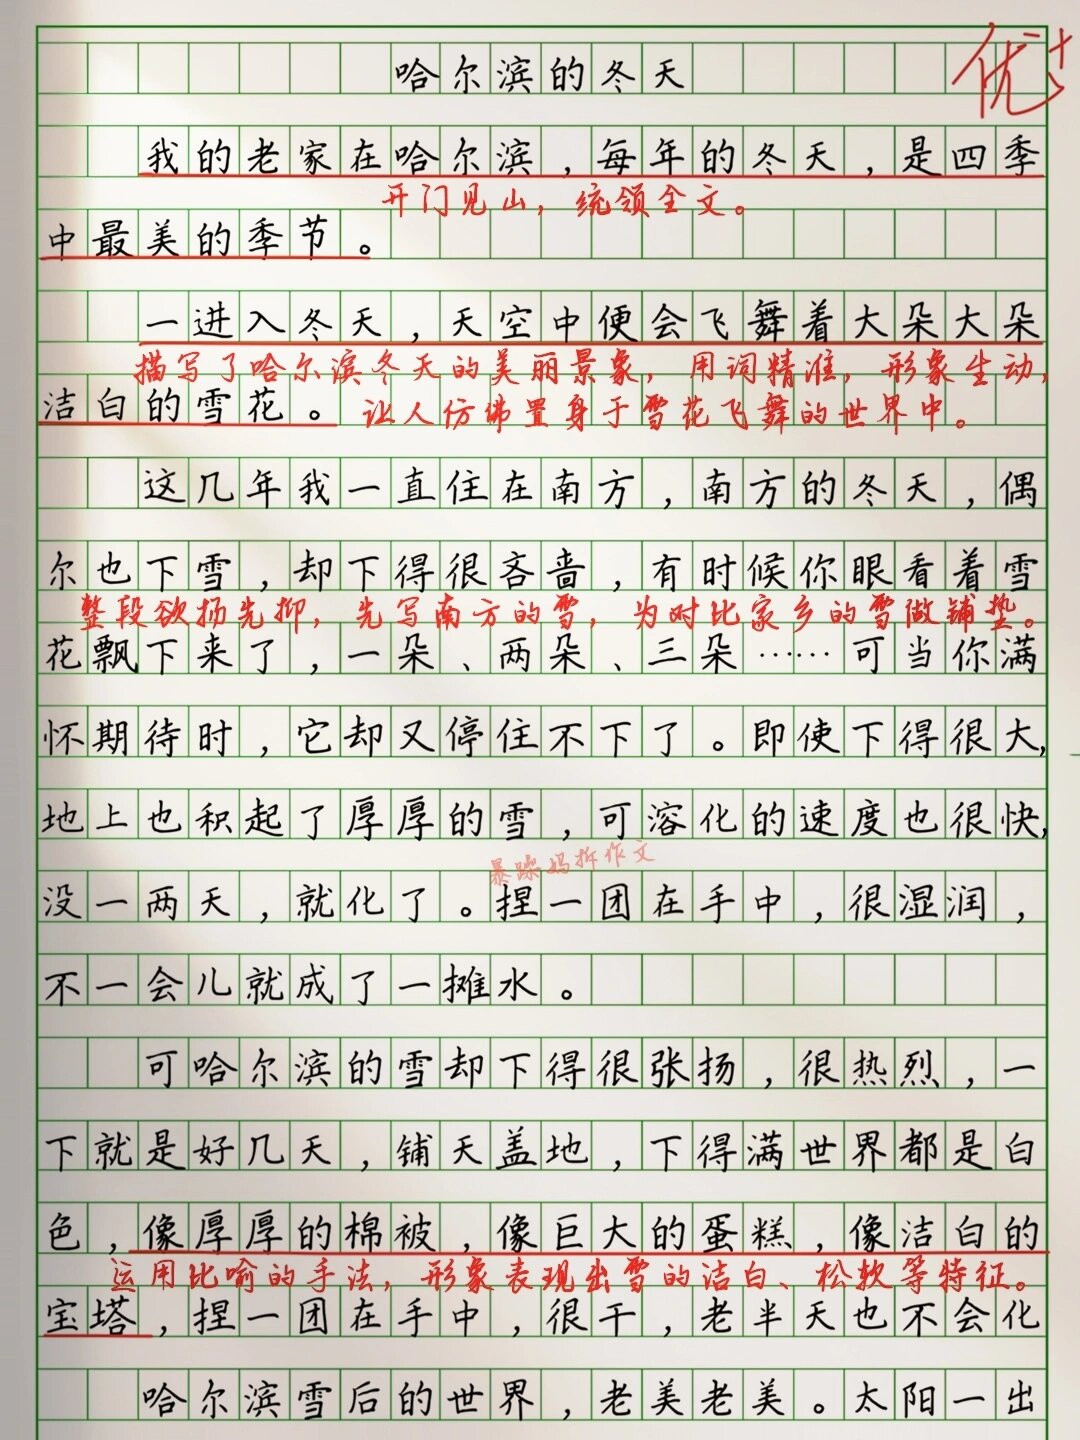 哈尔滨的冬天
优+
我的老家在哈尔滨，每年的冬天，是四季
开门见山，统领全文。
中最美的季节。
一进入冬天，天空中便会飞舞着大朵大朵
描写了哈尔滨冬天的美丽景象，用词精准，形象生动，
洁白的雪花。
让人仿佛置身于雪花飞舞的世界中。
这几年我一直住在南方，南方的冬天，偶
尔也下雪，却下得很吝啬，有时候你眼看着雪
整段欲扬先抑，先写南方的雪，为对比家乡的雪做铺垫。
花飘下来了，一朵、两朵、三朵……可当你满
怀期待时，它却又停住不下了。即使下得很大，
地上也积起了厚厚的雪，可溶化的速度也很快，
暴躁妈拆作文
没一两天，就化了。捏一团在手中，很湿润，
不一会儿就成了一摊水。
可哈尔滨的雪却下得很张扬，很热烈，一
下就是好几天，铺天盖地，下得满世界都是白
色，像厚厚的棉被，像巨大的蛋糕，像洁白的
运用比喻的手法，形象表现出雪的洁白、松软等特征。
宝塔，捏一团在手中，很干，老半天也不会化
哈尔滨雪后的世界，老美老美。太阳一出